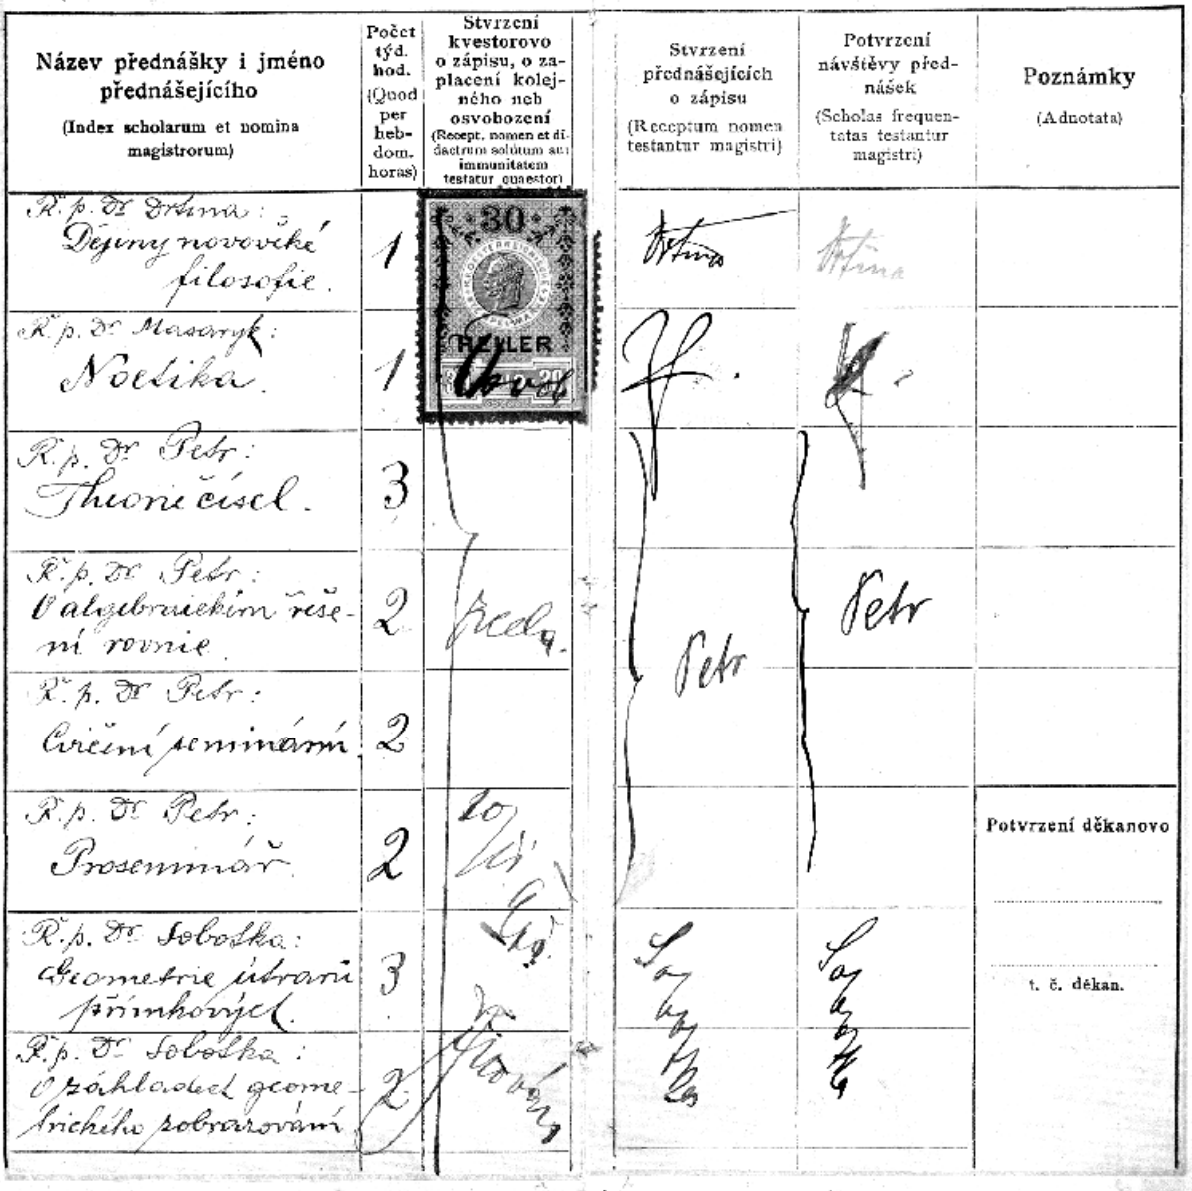 Název přednášky i jméno
přednášejícího
(Index scholarum et nomina
magistrorum)
Počet
týd.
hod.
(Quod
per
heb-
dom.
horas)
Stvrzení
kvestorovo
o zápisu, o za-
placení kolej-
ného neb
osvobození
(Recept. nomen et di-
dactrum solutum aut
immunitatem
testatur quaestor)
Stvrzení
přednášejících
o zápisu
(Receptum nomen
testantur magistri)
Potvrzení
návštěvy před-
nášek
(Scholas frequen-
tatas testantur
magistri)
Poznámky
(Adnotata)
Ř. p. Dr Drtina:
Dějiny novověké
filosofie.
1
30
HELLER
Drtina
Drtina
Ř. p. Dr Masaryk:
Noetika.
1
Ř. p. Dr Petr:
Theorie čísel.
3
Ř. p. Dr Petr:
O algebraickém řeše-
ní rovnic.
2
Petr
Petr
Ř. p. Dr Petr:
Cvičení seminární
2
Ř. p. Dr Petr:
Proseminář.
2
Potvrzení děkanovo
t. č. děkan.
Ř. p. Dr Sobotka:
Geometrie útvarů
přímkových.
3
Sobotka
Sobotka
Ř. p. Dr Sobotka:
O základech geome-
trického zobrazování
2